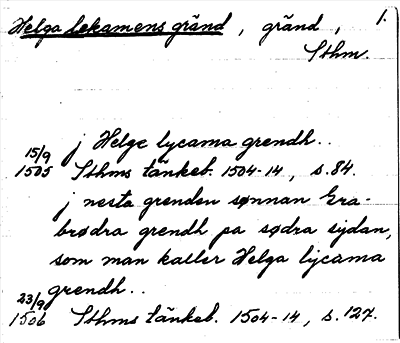 Helga lekamens gränd, gränd, 1.
Sthm.
j Helge lycama grendh..
15/9 1505 Sthms tänkeb. 1504-14, s. 84.
j nesta grenden sønnan Gra-
brødra grendh pa sødra sydan,
som man kaller Helga lycama
grendh..
23/9 1506 Sthms tänkeb. 1504-14, s. 127.